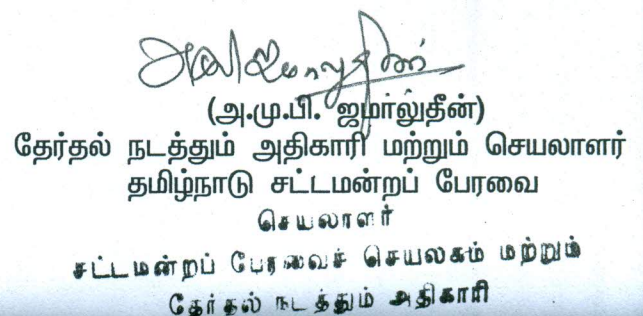 அ.மு.பி.ஜமாலுதீன்
(அ.மு.பி. ஜமாலுதீன்)
தேர்தல் நடத்தும் அதிகாரி மற்றும் செயலாளர்
தமிழ்நாடு சட்டமன்றப் பேரவை
செயலாளர்
சட்டமன்றப் பேரவைச் செயலகம் மற்றும்
தேர்தல் நடத்தும் அதிகாரி